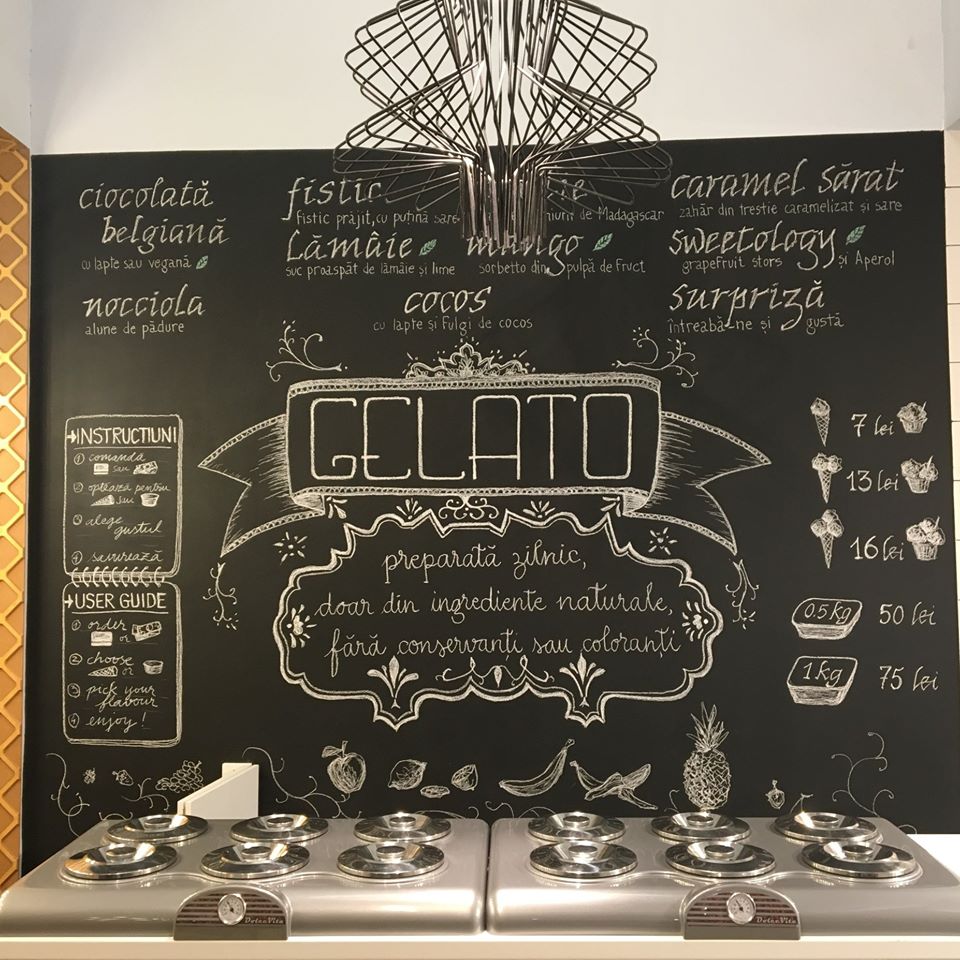 ciocolată
belgiană
cu lapte sau vegană
nocciola
alune de pădure
fistic
fistic prăjit, cu puțină sare
Lămâie
suc proaspăt de lămâie și lime
cocos
cu lapte și fulgi de cocos
de Madagascar
mango
sorbetto din pulpă de fruct
caramel sărat
zahăr din trestie caramelizat și sare
sweetology
grapefruit stors și Aperol
surpriză
întreabă-ne și gustă
GELATO
preparată zilnic,
doar din ingrediente naturale,
fără conservanți sau coloranți
INSTRUCTIUNI
1 comandă
sau
2 optează pentru
sau
3 alege
gustul
4 savurează
USER GUIDE
1 order
or
2 choose
or
3 pick your
flavour
4 enjoy!
7 lei
13 lei
16 lei
0.5 kg 50 lei
1 kg 75 lei
DolceVita
DolceVita